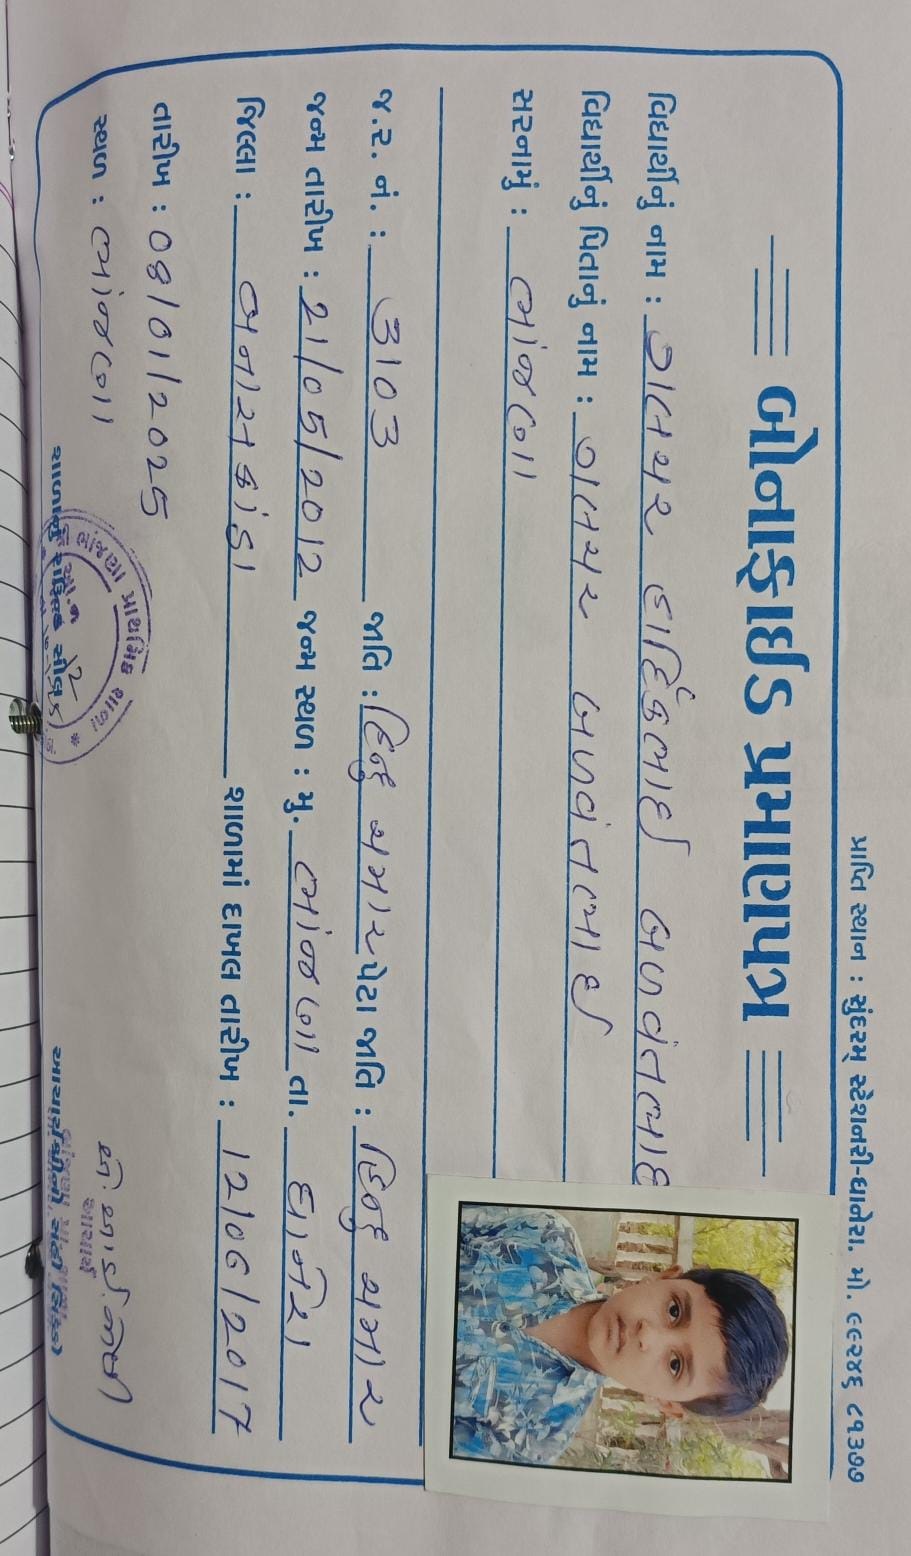 પ્રાપ્તિ સ્થાન : સુંદરમ્ સ્ટેશનરી-ધાનેરા. મો. ૯૯૨૪૬ ૮૧૩૭૭
બોનાફાઈડ પ્રમાણપત્ર
વિદ્યાર્થીનું નામ : ગલચર હાર્દિકભાઈ બળવંતભાઈ
વિદ્યાર્થીનું પિતાનું નામ : ગલચર બળવંતભાઈ
સરનામું : ભાંજણા
જ.ર. નં. : 3103 જાતિ : હિન્દુ ચમાર પેટા જાતિ : હિન્દુ ચમાર
જન્મ તારીખ : 21/05/2012 જન્મ સ્થળ : મુ. ભાંજણા તા. ધાનેરા
જિલ્લા : બનાસકાંઠા શાળામાં દાખલ તારીખ : 12/06/2017
તારીખ : 08/01/2025
સ્થળ : ભાંજણા
પ્રાથમિક શાળા
આચાર્ય
શાળાનું રાઉન્ડ સીલ
આચાર્યશ્રીની સહી સિક્કા